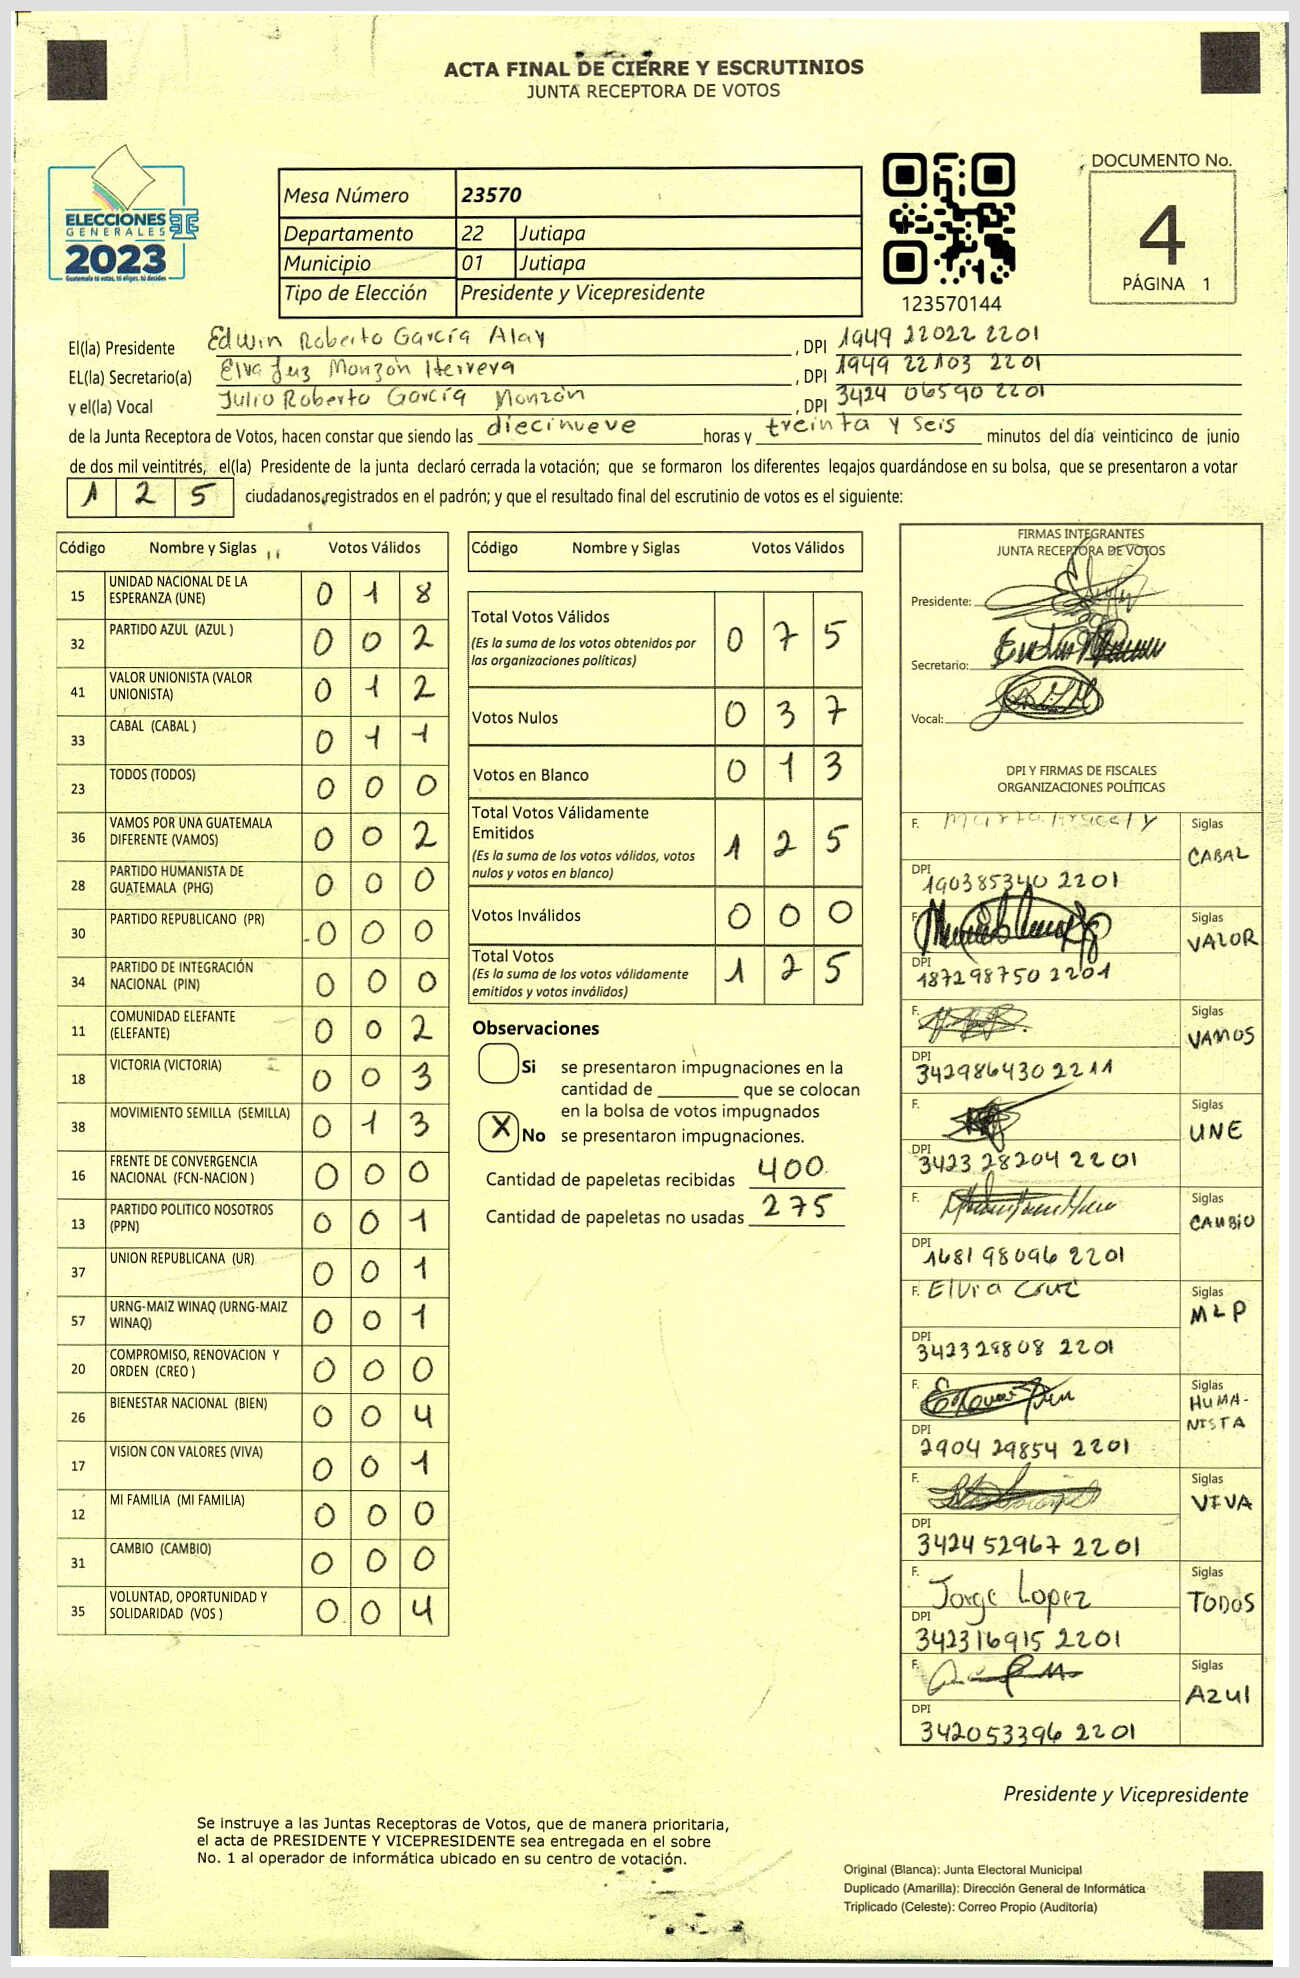 ACTA FINAL DE CIERRE Y ESCRUTINIOS
JUNTA RECEPTORA DE VOTOS
ELECCIONES
GENERALES
2023
Guatemala tú votas, tú eliges, tú decides
Mesa Número 23570
Departamento 22 Jutiapa
Municipio 01 Jutiapa
Tipo de Elección Presidente y Vicepresidente
123570144
DOCUMENTO No.
4
PÁGINA 1
El(la) Presidente Edwin Roberto García Alay , DPI 1949 22022 2201
EL(la) Secretario(a) Elva Luz Monzón Herrera , DPI 1949 22103 2201
y el(la) Vocal Julio Roberto García Monzón , DPI 3424 06590 2201
de la Junta Receptora de Votos, hacen constar que siendo las diecinueve horas y treinta y seis minutos del día veinticinco de junio
de dos mil veintitrés, el(la) Presidente de la junta declaró cerrada la votación; que se formaron los diferentes legajos guardándose en su bolsa, que se presentaron a votar
1 2 5 ciudadanos registrados en el padrón; y que el resultado final del escrutinio de votos es el siguiente:
Código Nombre y Siglas Votos Válidos
15 UNIDAD NACIONAL DE LA ESPERANZA (UNE) 0 1 8
32 PARTIDO AZUL (AZUL ) 0 0 2
41 VALOR UNIONISTA (VALOR UNIONISTA) 0 1 2
33 CABAL (CABAL ) 0 1 1
23 TODOS (TODOS) 0 0 0
36 VAMOS POR UNA GUATEMALA DIFERENTE (VAMOS) 0 0 2
28 PARTIDO HUMANISTA DE GUATEMALA (PHG) 0 0 0
30 PARTIDO REPUBLICANO (PR) 0 0 0
34 PARTIDO DE INTEGRACIÓN NACIONAL (PIN) 0 0 0
11 COMUNIDAD ELEFANTE (ELEFANTE) 0 0 2
18 VICTORIA (VICTORIA) 0 0 3
38 MOVIMIENTO SEMILLA (SEMILLA) 0 1 3
16 FRENTE DE CONVERGENCIA NACIONAL (FCN-NACION ) 0 0 0
13 PARTIDO POLITICO NOSOTROS (PPN) 0 0 1
37 UNION REPUBLICANA (UR) 0 0 1
57 URNG-MAIZ WINAQ (URNG-MAIZ WINAQ) 0 0 1
20 COMPROMISO, RENOVACION Y ORDEN (CREO ) 0 0 0
26 BIENESTAR NACIONAL (BIEN) 0 0 4
17 VISION CON VALORES (VIVA) 0 0 1
12 MI FAMILIA (MI FAMILIA) 0 0 0
31 CAMBIO (CAMBIO) 0 0 0
35 VOLUNTAD, OPORTUNIDAD Y SOLIDARIDAD (VOS ) 0 0 4
Código Nombre y Siglas Votos Válidos
Total Votos Válidos 0 7 5
(Es la suma de los votos obtenidos por
las organizaciones políticas)
Votos Nulos 0 3 7
Votos en Blanco 0 1 3
Total Votos Válidamente
Emitidos 1 2 5
(Es la suma de los votos válidos, votos
nulos y votos en blanco)
Votos Inválidos 0 0 0
Total Votos 1 2 5
(Es la suma de los votos válidamente
emitidos y votos inválidos)
Observaciones
Si se presentaron impugnaciones en la
cantidad de ________ que se colocan
en la bolsa de votos impugnados
X No se presentaron impugnaciones.
Cantidad de papeletas recibidas 400
Cantidad de papeletas no usadas 275
FIRMAS INTEGRANTES
JUNTA RECEPTORA DE VOTOS
Presidente:
Secretario:
Vocal:
DPI Y FIRMAS DE FISCALES
ORGANIZACIONES POLÍTICAS
F. Siglas
CABAL
DPI
190385340 2201
F. Siglas
VALOR
DPI
187298750 2201
F. Siglas
VAMOS
DPI
342986430 2211
F. Siglas
UNE
DPI
3423 28204 2201
F. Siglas
CAMBIO
DPI
1681 98096 2201
F. Elvia Cruz Siglas
MLP
DPI
342328808 2201
F. Siglas
HUMA-
NISTA
DPI
2904 29854 2201
F. Siglas
VIVA
DPI
3424 52967 2201
F. Jorge Lopez Siglas
TODOS
DPI
342316915 2201
F. Siglas
Azul
DPI
342053396 2201
Presidente y Vicepresidente
Se instruye a las Juntas Receptoras de Votos, que de manera prioritaria,
el acta de PRESIDENTE Y VICEPRESIDENTE sea entregada en el sobre
No. 1 al operador de informática ubicado en su centro de votación.
Original (Blanca): Junta Electoral Municipal
Duplicado (Amarilla): Dirección General de Informática
Triplicado (Celeste): Correo Propio (Auditoría)